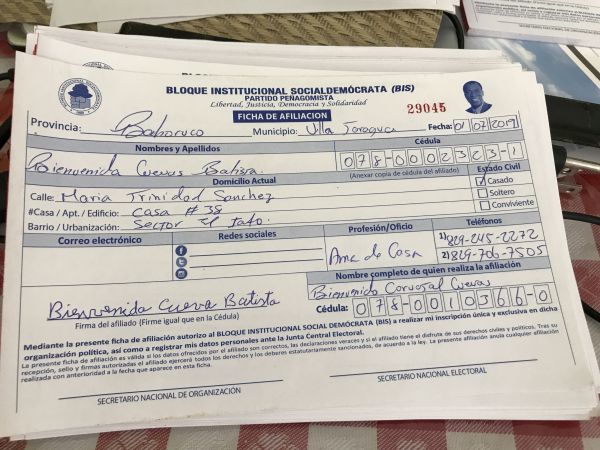 BLOQUE INSTITUCIONAL SOCIALDEMÓCRATA (BIS)
PARTIDO PEÑAGOMISTA
Libertad, Justicia, Democracia y Solidaridad
FICHA DE AFILIACION
29045
Provincia: Bahoruco Municipio: Villa Jaragua Fecha: 01/07/2019
Nombres y Apellidos
Cédula
Bienvenida Cuevas Batista
078-0002323-1
(Anexar copia de cédula del afiliado)
Domicilio Actual
Estado Civil
Calle: Maria Trinidad Sanchez
Casado
#Casa / Apt. / Edificio: Casa # 38
Soltero
Barrio / Urbanización: Sector El
Conviviente
Correo electrónico
Redes sociales
Profesión/Oficio
Teléfonos
Ama de Casa
1) 829-245-2272
2) 829-706-7505
Nombre completo de quien realiza la afiliación
Bienvenido Cuevas
Bienvenida Cueva Batista
Cédula: 078-0010366-0
Firma del afiliado (Firme igual que en la Cédula)
Mediante la presente ficha de afiliación autorizo al BLOQUE INSTITUCIONAL SOCIAL DEMÓCRATA (BIS) a realizar mi inscripción única y exclusiva en dicha
organización política, así como a registrar mis datos personales ante la Junta Central Electoral.
La presente ficha de afiliación es válida si los datos ofrecidos por el afiliado son correctos, las declaraciones veraces y si el afiliado tiene el disfrute de sus derechos civiles y políticos. Tras su
recepción, sello y firmas autorizadas el afiliado ejercerá todos los derechos y los deberes estatutariamente sancionados, de acuerdo a la ley. La presente afiliación anula cualquier afiliación
realizada con anterioridad a la fecha que aparece en esta ficha.
SECRETARIO NACIONAL DE ORGANIZACIÓN
SECRETARIO NACIONAL ELECTORAL